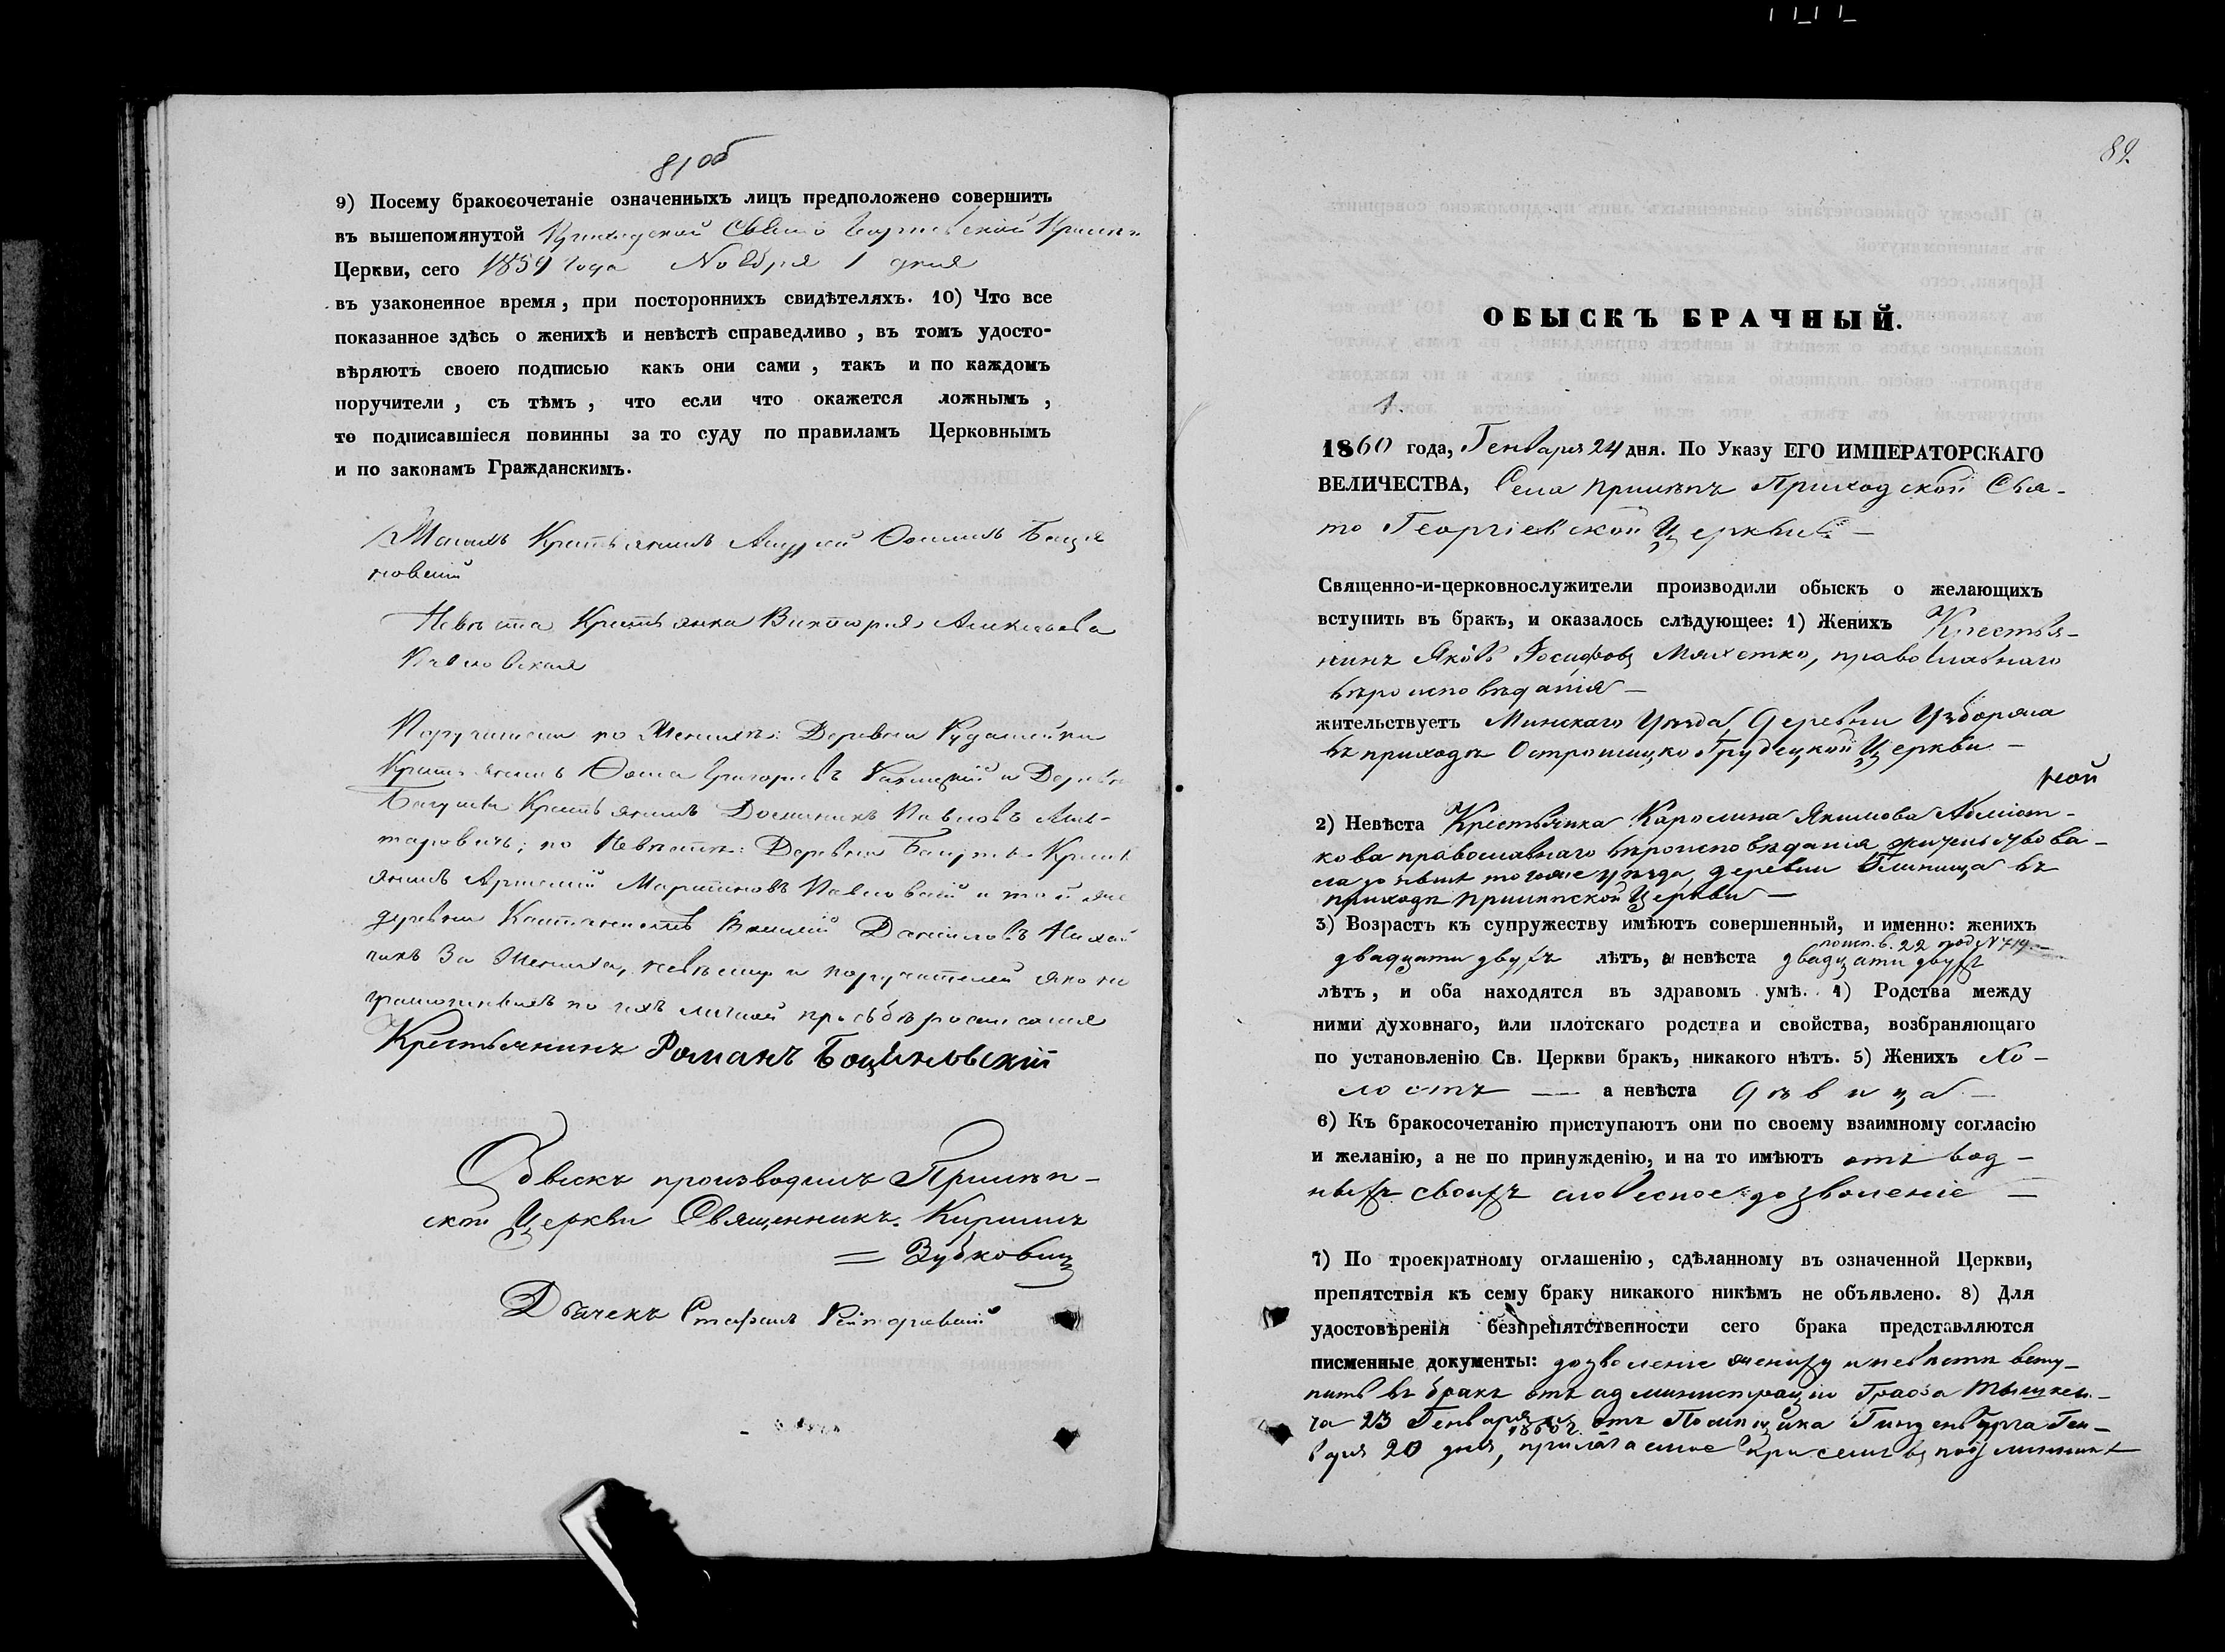 81 об
9) Посему бракосочетаніе означенныхъ лицъ предположено совершить
въ вышепомянутой Приходской Свято Георгіевской Прилеп
Церкви, сего 1859 года Ноября 1 дня
въ узаконенное время, при постороннихъ свидѣтеляхъ. 10) Что все
показанное здѣсь о женихѣ и невѣстѣ справедливо, въ томъ удосто-
вѣряютъ своею подписью какъ они сами, такъ и по каждомъ
поручители, съ тѣмъ, что если что окажется ложнымъ,
то подписавшіеся повинны за то суду по правиламъ Церковнымъ
и по законамъ Гражданскимъ.
Женихъ Крестьянинъ Андрей Фоминъ Боця
новскій
Невѣста Крестьянка Викторія Алексѣева
Павловская
Поручители по Женихѣ: Деревни
Крестьянинъ Фома Григорьевъ и Деревни
Крестьянинъ Доминикъ Павловъ
по Невѣстѣ: Деревни Крестья
янинъ Артемій Мартиновъ Павловскій и той же
деревни Василій Даниловъ
За Жениха, невѣсту и поручителей яко не
грамотныхъ по ихъ личной прозьбѣ росписался
Крестьянинъ Романъ Боцяновскій
Обыскъ производилъ Прилѣп-
ской Церкви Священникъ Кирилъ
= Зубковичъ
Дьячекъ Стефанъ
89.
ОБЫСКЪ БРАЧНЫЙ.
1.
1860 года, Генваря 24 дня. По Указу ЕГО ИМПЕРАТОРСКАГО
ВЕЛИЧЕСТВА, Села Прилѣпъ Приходской Свя-
то Георгіевской Церкви —
Священно-и-церковнослужители производили обыскъ о желающихъ
вступить въ бракъ, и оказалось слѣдующее: 1) Женихъ Крестья-
нинъ Яковъ Іосифовъ Мяхетко, православнаго
вѣроисповѣданія —
жительствуетъ Минскаго Уѣзда, Деревни
въ приходѣ Острошицко Грудецкой Церкви —
2) Невѣста Крестьянка Каролина Якимова
кова православнаго вѣроисповѣданія жительствова-
ла до нынѣ тогоже уѣзда, деревни Глиница въ
приходѣ Прилѣпской Церкви —
3) Возрастъ къ супружеству имѣютъ совершенный, и именно: женихъ
двадцати двухъ лѣтъ, а невѣста двадцати двухъ
лѣтъ, и оба находятся въ здравомъ умѣ. 4) Родства между
ними духовнаго, или плотскаго родства и свойства, возбраняющаго
по установленію Св. Церкви бракъ, никакого нѣтъ. 5) Женихъ Хо-
лостъ — а невѣста дѣвица —
6) Къ бракосочетанію приступаютъ они по своему взаимному согласію
и желанію, а не по принужденію, и на то имѣютъ отъ вод-
ныхъ своихъ словесное дозволеніе —
7) По троекратному оглашенію, сдѣланному въ означенной Церкви,
препятствія къ сему браку никакого никѣмъ не объявлено. 8) Для
удостовѣренія безпрепятственности сего брака представляются
писменные документы: дозволеніе жениху и невѣстѣ всту-
пить въ бракъ отъ администраціи Графа Тышкеви-
ча 23 Генваря и отъ Помѣщика Гинденбурга Ген-
1860 г.
варя 20 дня, прилагаемое при семъ въ подлинник